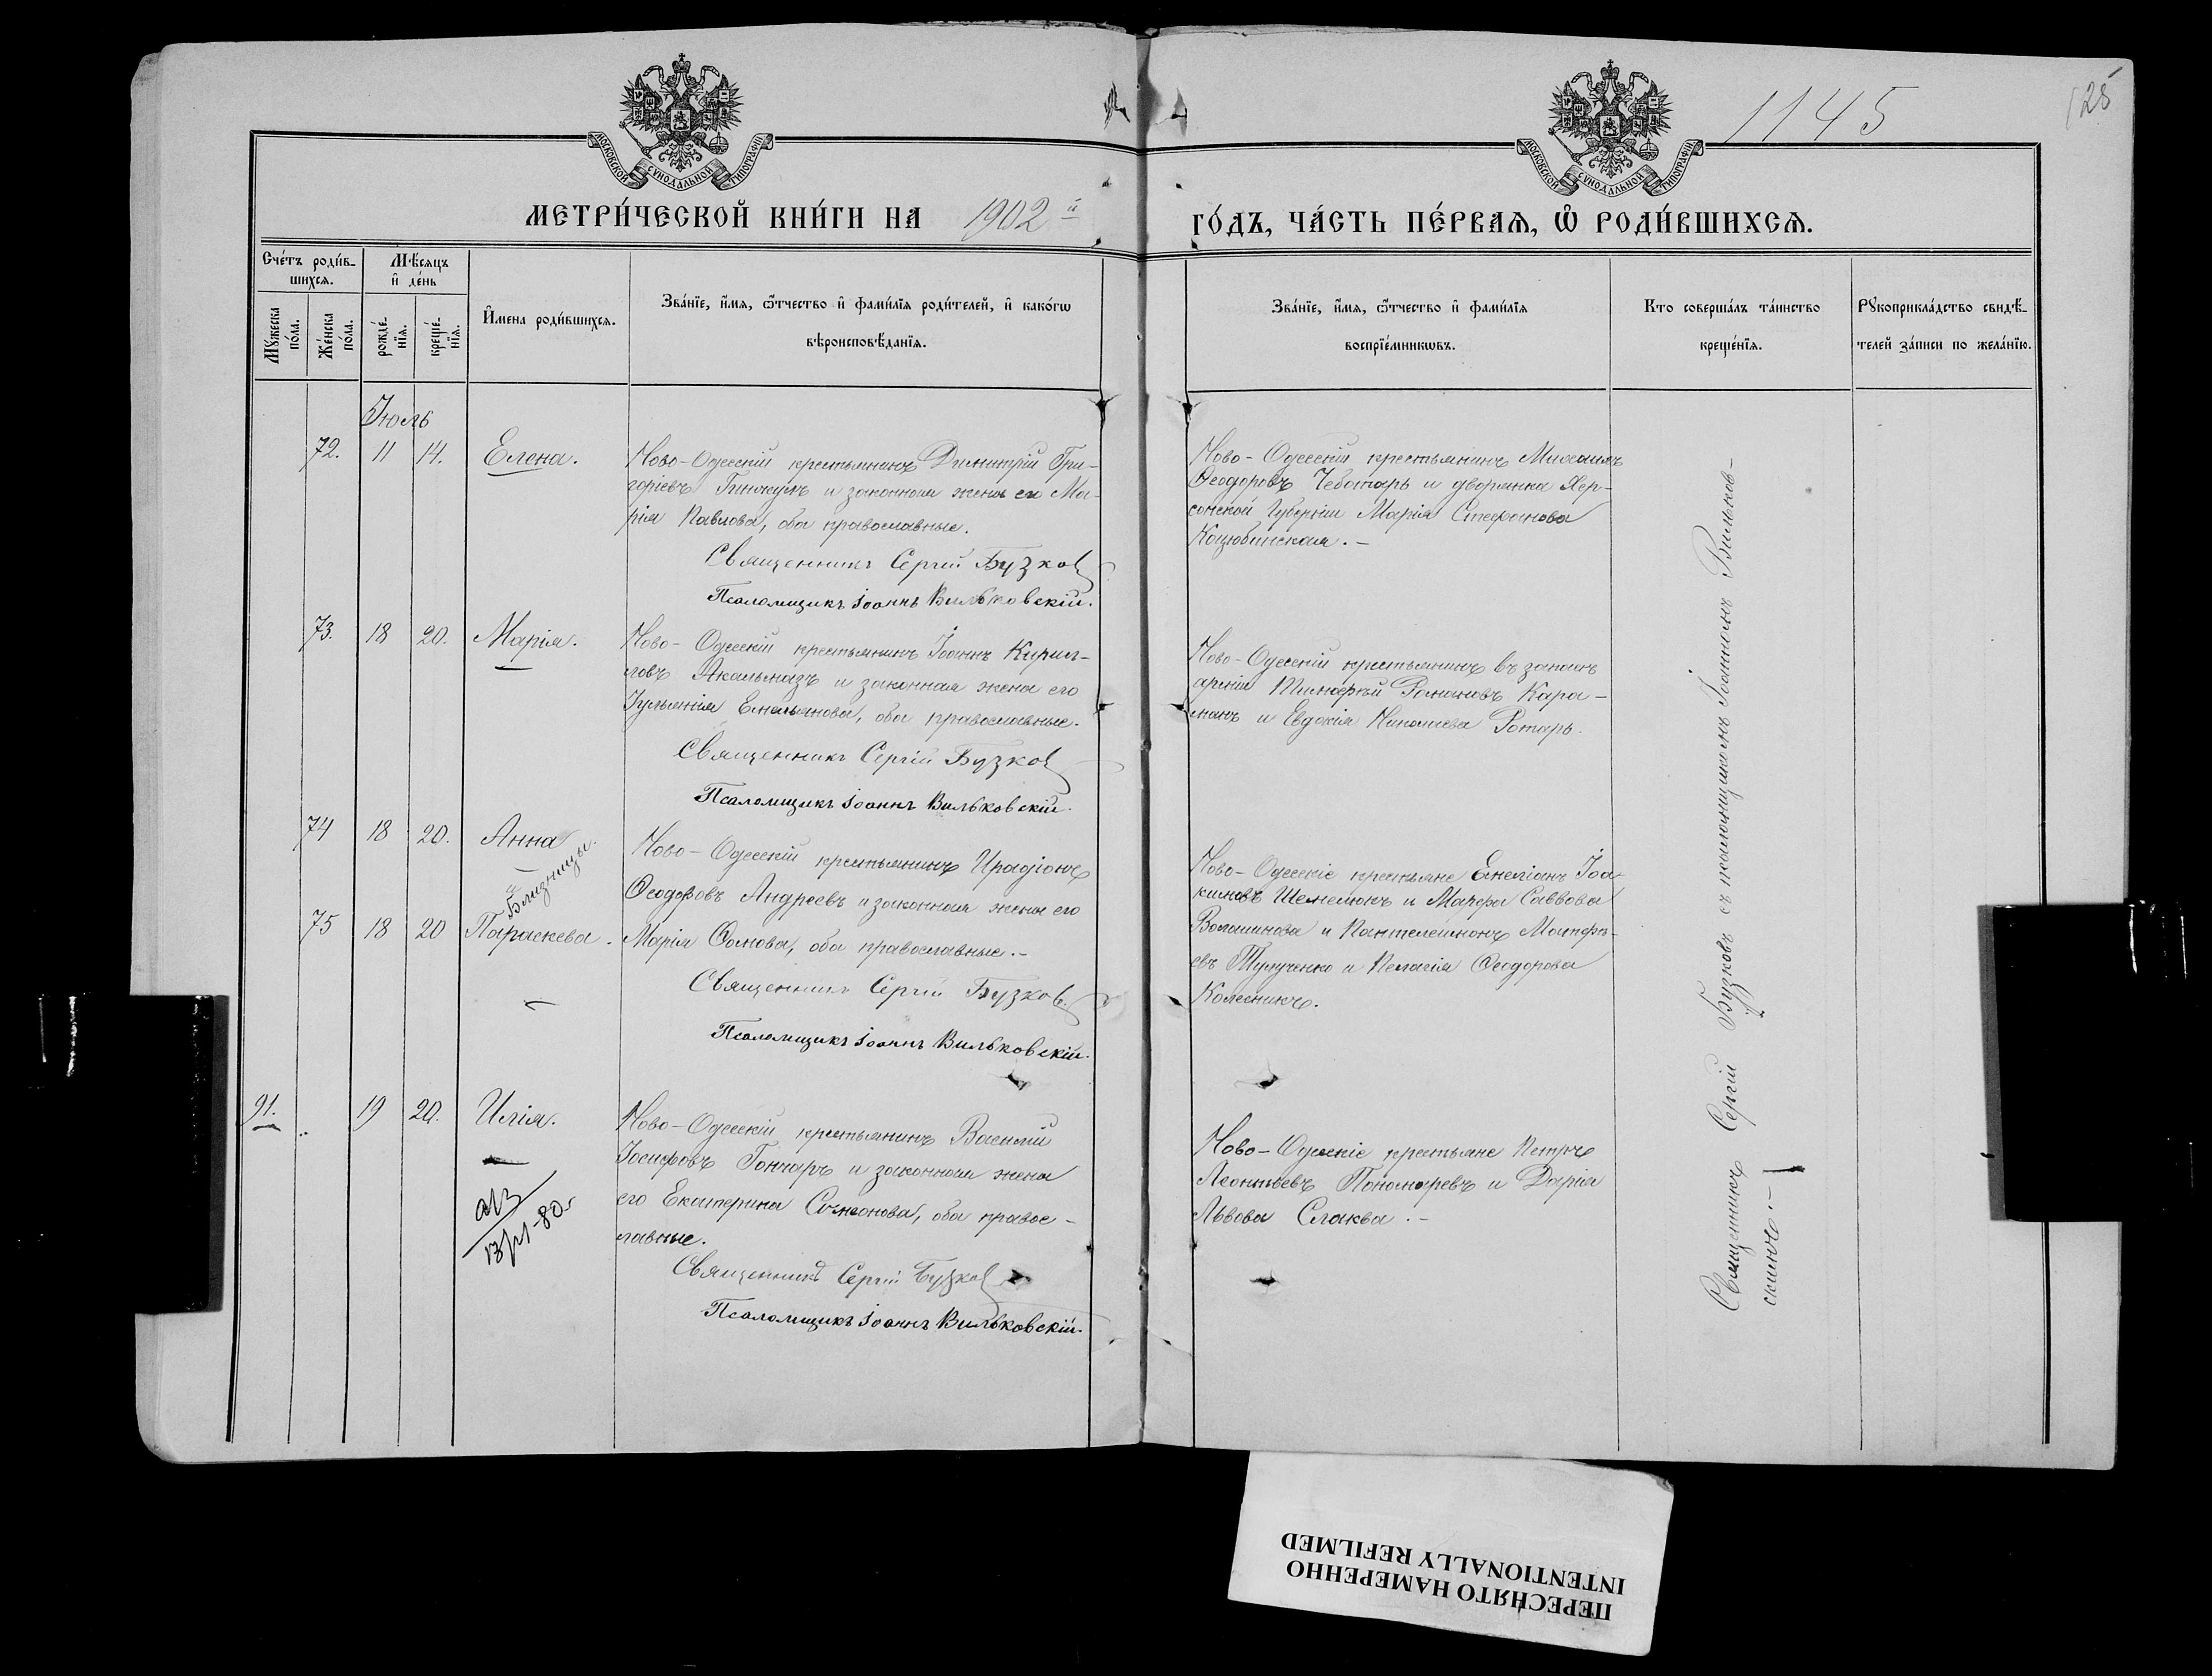 1145
125
МОСКОВСКОЙ СУНОДАЛЬНОЙ ТИПОГРАФІИ
МОСКОВСКОЙ СУНОДАЛЬНОЙ ТИПОГРАФІИ
МЕТРИ́ЧЕСКОЙ КНИ́ГИ НА 1902й
ГО́ДЪ, ЧА́СТЬ ПЕ́РВАѦ, Ѽ РОДИ́ВШИХСѦ.
Сче́тъ роди́в-
шихсѧ.
Мꙋ́жеска
по́ла.
Же́нска
по́ла.
Мѣ́сѧцъ
и҆ де́нь
рожде́-
нїѧ.
креще́-
нїѧ.
И҆мена роди́вшихсѧ.
Зва́нїе, и҆́мѧ, ѻ҆́тчество и҆ фами́лїѧ роди́телей, и҆ како́гѡ
вѣроисповѣ́данїѧ.
Зва́нїе, и҆́мѧ, ѻ҆́тчество и҆ фами́лїѧ
воспрїе́мникѡвъ.
Кто соверша́лъ та́инство
креще́нїѧ.
Рꙋкоприкла́дство свидѣ́-
телей за́писи по жела́нїю.
Іюль
72. 11 14. Елена.
Ново-Одесскій крестьянинъ Димитрій Гри-
горіевъ и законная жена его Ма-
рія Павлова, оба православные.
Священникъ Сергій Бузков
Псаломщикъ Іоаннъ Вильковскій.
Ново-Одесскій крестьянинъ Михаилъ
Ѳеодоровъ Чеботарь и дворянка Хер-
сонской Губерніи Марія Стефанова
Коцюбинская.-
73. 18 20. Марія.
Ново-Одесскій крестьянинъ Іоаннъ Кирил-
ловъ Акальмазъ и законная жена его
Іуліанія Емельянова, оба православные.
Священникъ Сергій Бузков
Псаломщикъ Іоаннъ Вильковскій.
Ново-Одесскій крестьянинъ въ запасѣ
арміи Тимофей Романовъ Кара-
манъ и Евдокія Николаева Ротарь.
74 18 20. Анна
и Близницы.
75 18 20 Параскева.
Ново-Одесскій крестьянинъ Иродіонъ
Ѳеодоровъ Андреевъ и законная жена его
Марія Ѳомова, оба православные.-
Священникъ Сергій Бузков.
Псаломщикъ Іоаннъ Вильковскій.
Ново-Одесскіе крестьяне Емеліанъ Іоа-
кимовъ Шемелюнъ и Марфа Саввова
Волошинова и Пантелеимонъ Матфе-
евъ Тулученко и Пелагія Ѳеодорова
Колесникъ.
91. 19 20. Илія.
Ново-Одесскій крестьянинъ Василій
Іосифовъ Гончаръ и законная жена
его Екатерина Симеонова, оба правос-
лавные.
Священникъ Сергій Бузков
Псаломщикъ Іоаннъ Вильковскій.
Ново-Одесскіе крестьяне Петръ
Леонтьевъ Пономаревъ и Дарія
Львова Слаква.-
Священникъ Сергій Бузковъ съ псаломщикомъ Іоанномъ Вильков-
скимъ.-
ПЕРЕСНЯТО НАМЕРЕННО
INTENTIONALLY REFILMED